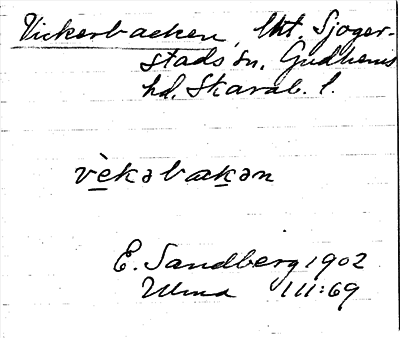 Vickerbacken, lht. Sjoger-
stads sn. Gudhems
hd. Skarab. l.
vèkəbakən
E. Sandberg 1902
Ulma 111:69